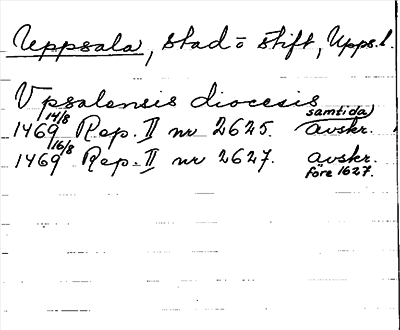 Uppsala, stad o stift, Upps.l.
Vpsalensis diocesis
1469 14/8 Rep. II nr 2625. samtida avskr.
1469 16/8 Rep. II nr 2627. avskr.
före 1627.